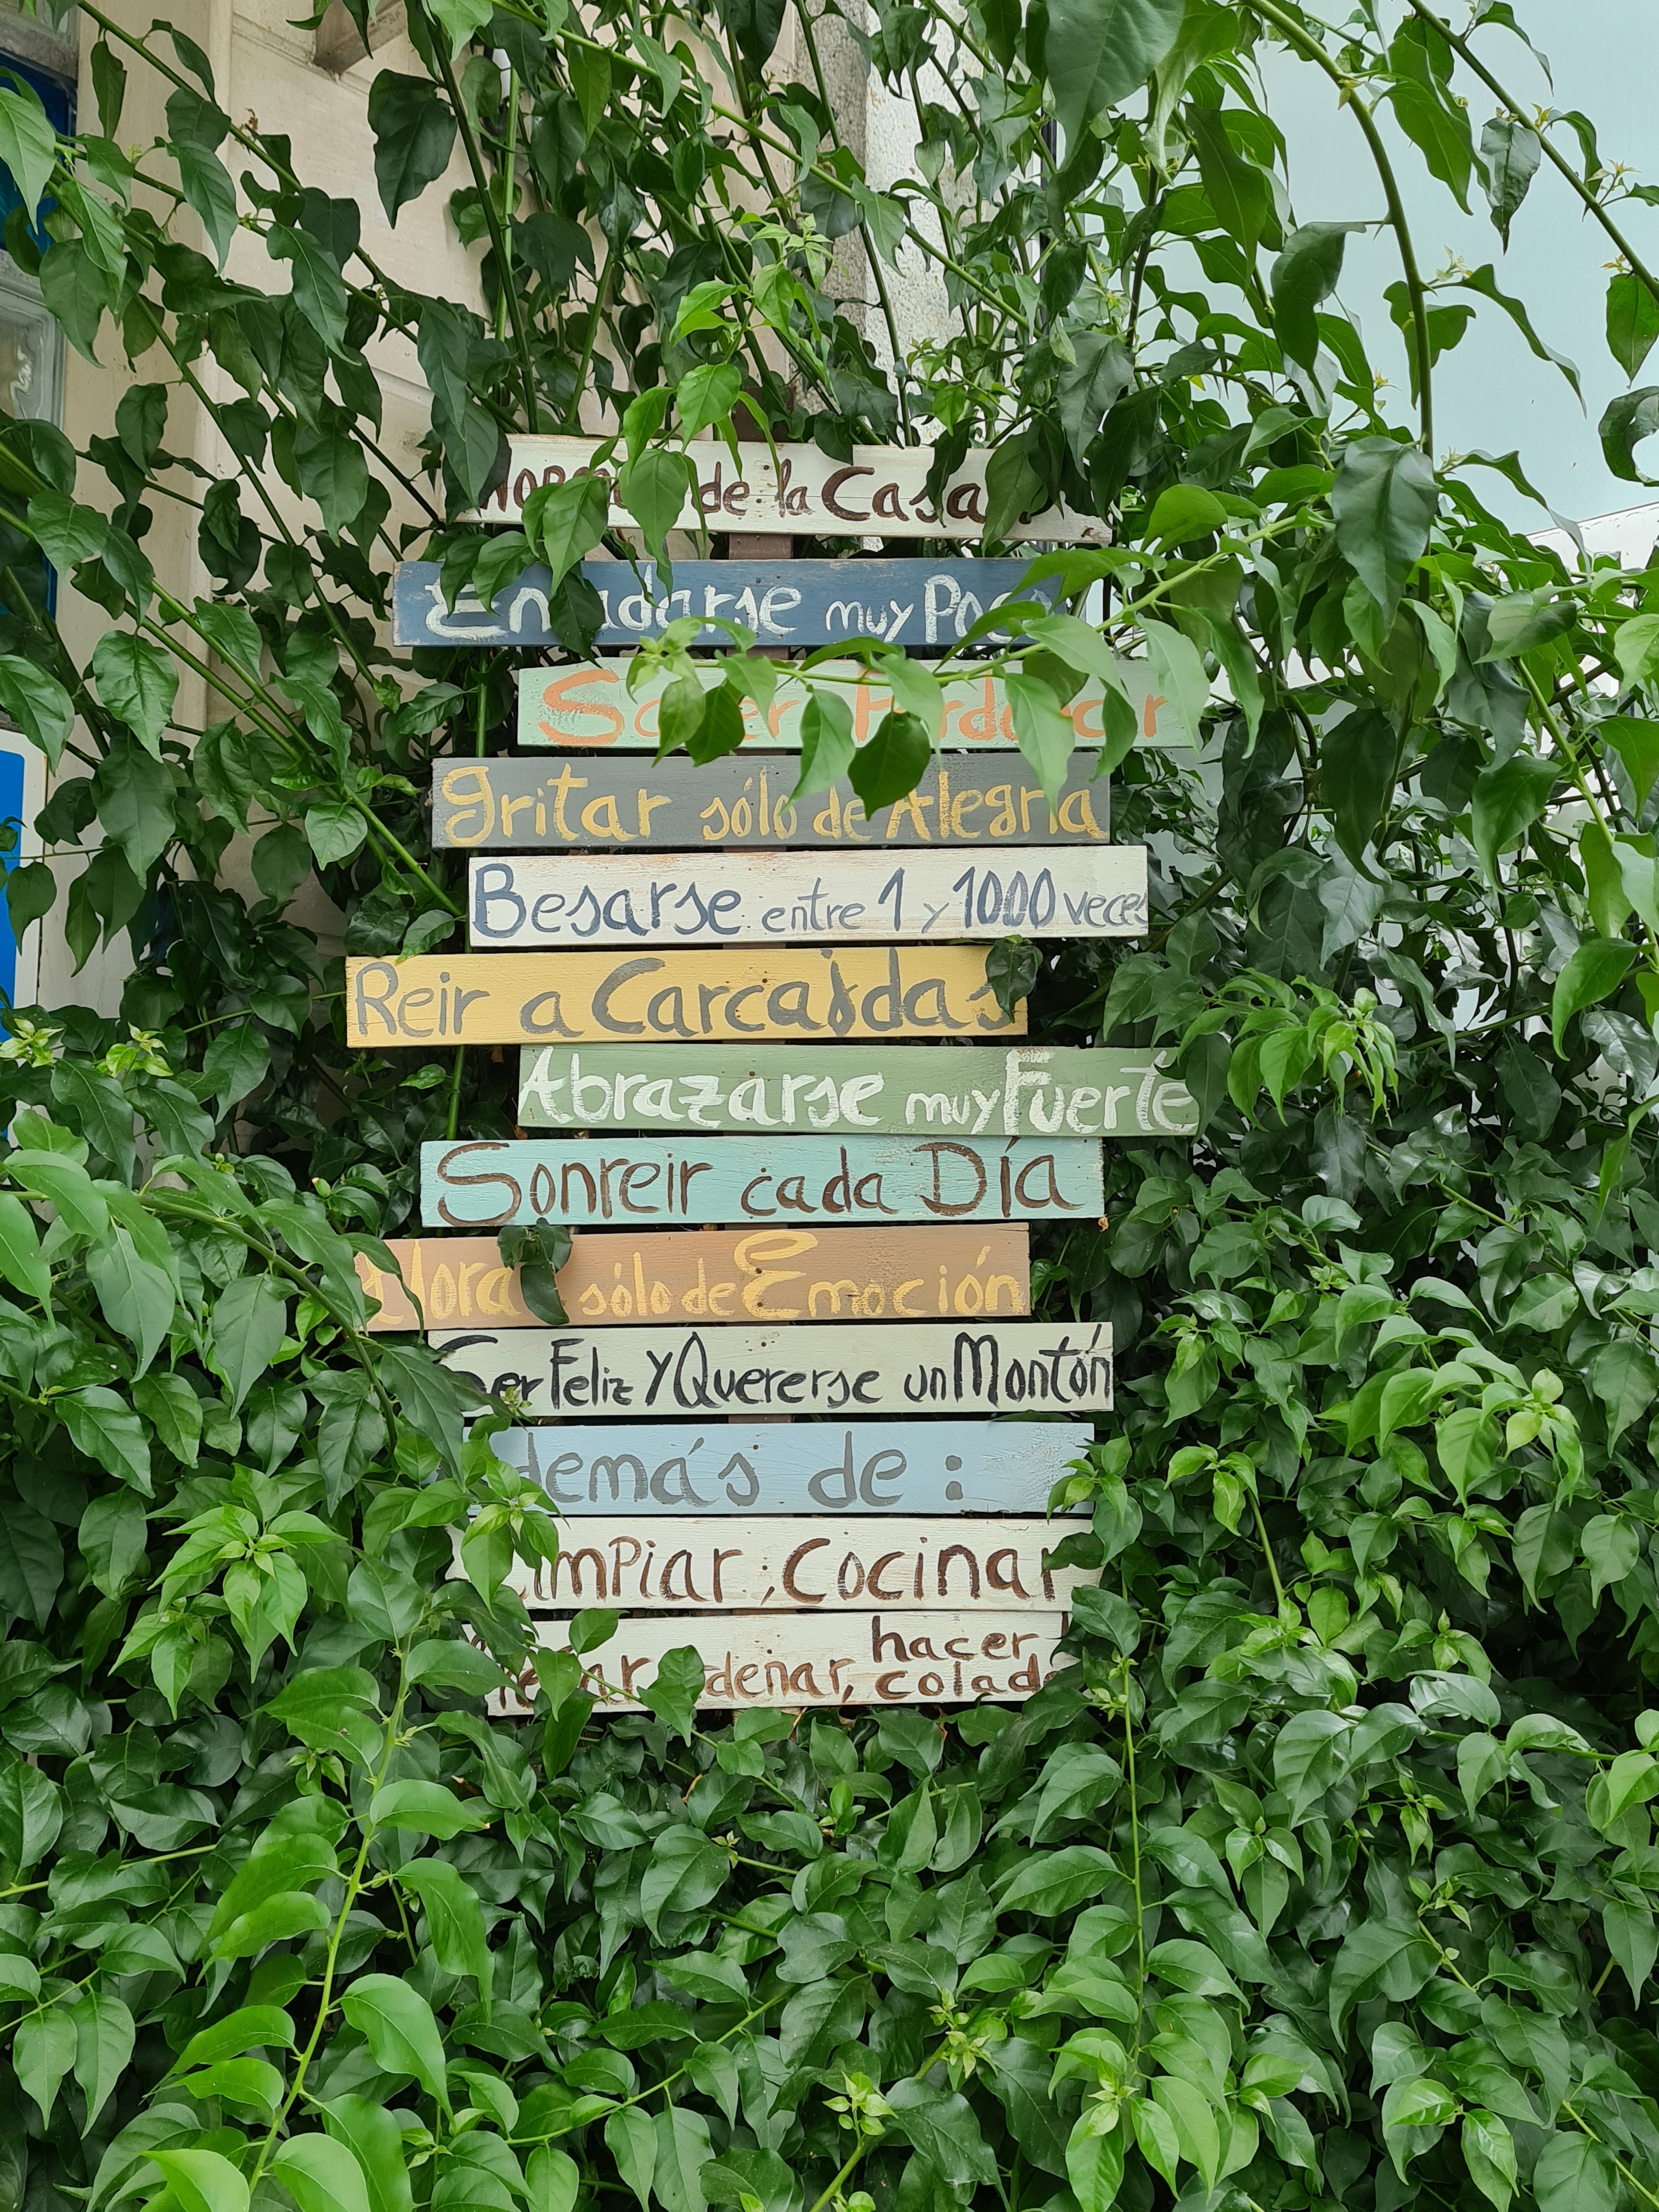 de la Casa
Enfadarse muy Poco
Saber Perdonar
Gritar sólo de Alegría
Besarse entre 1 y 1000 veces
Reir a Carcajdas
Abrazarse muy Fuerte
Sonreir cada Día
Llorar sólo de Emoción
Ser Feliz Y Quererse un Montón
Además de :
Limpiar, Cocinar
hacer
ordenar, colada